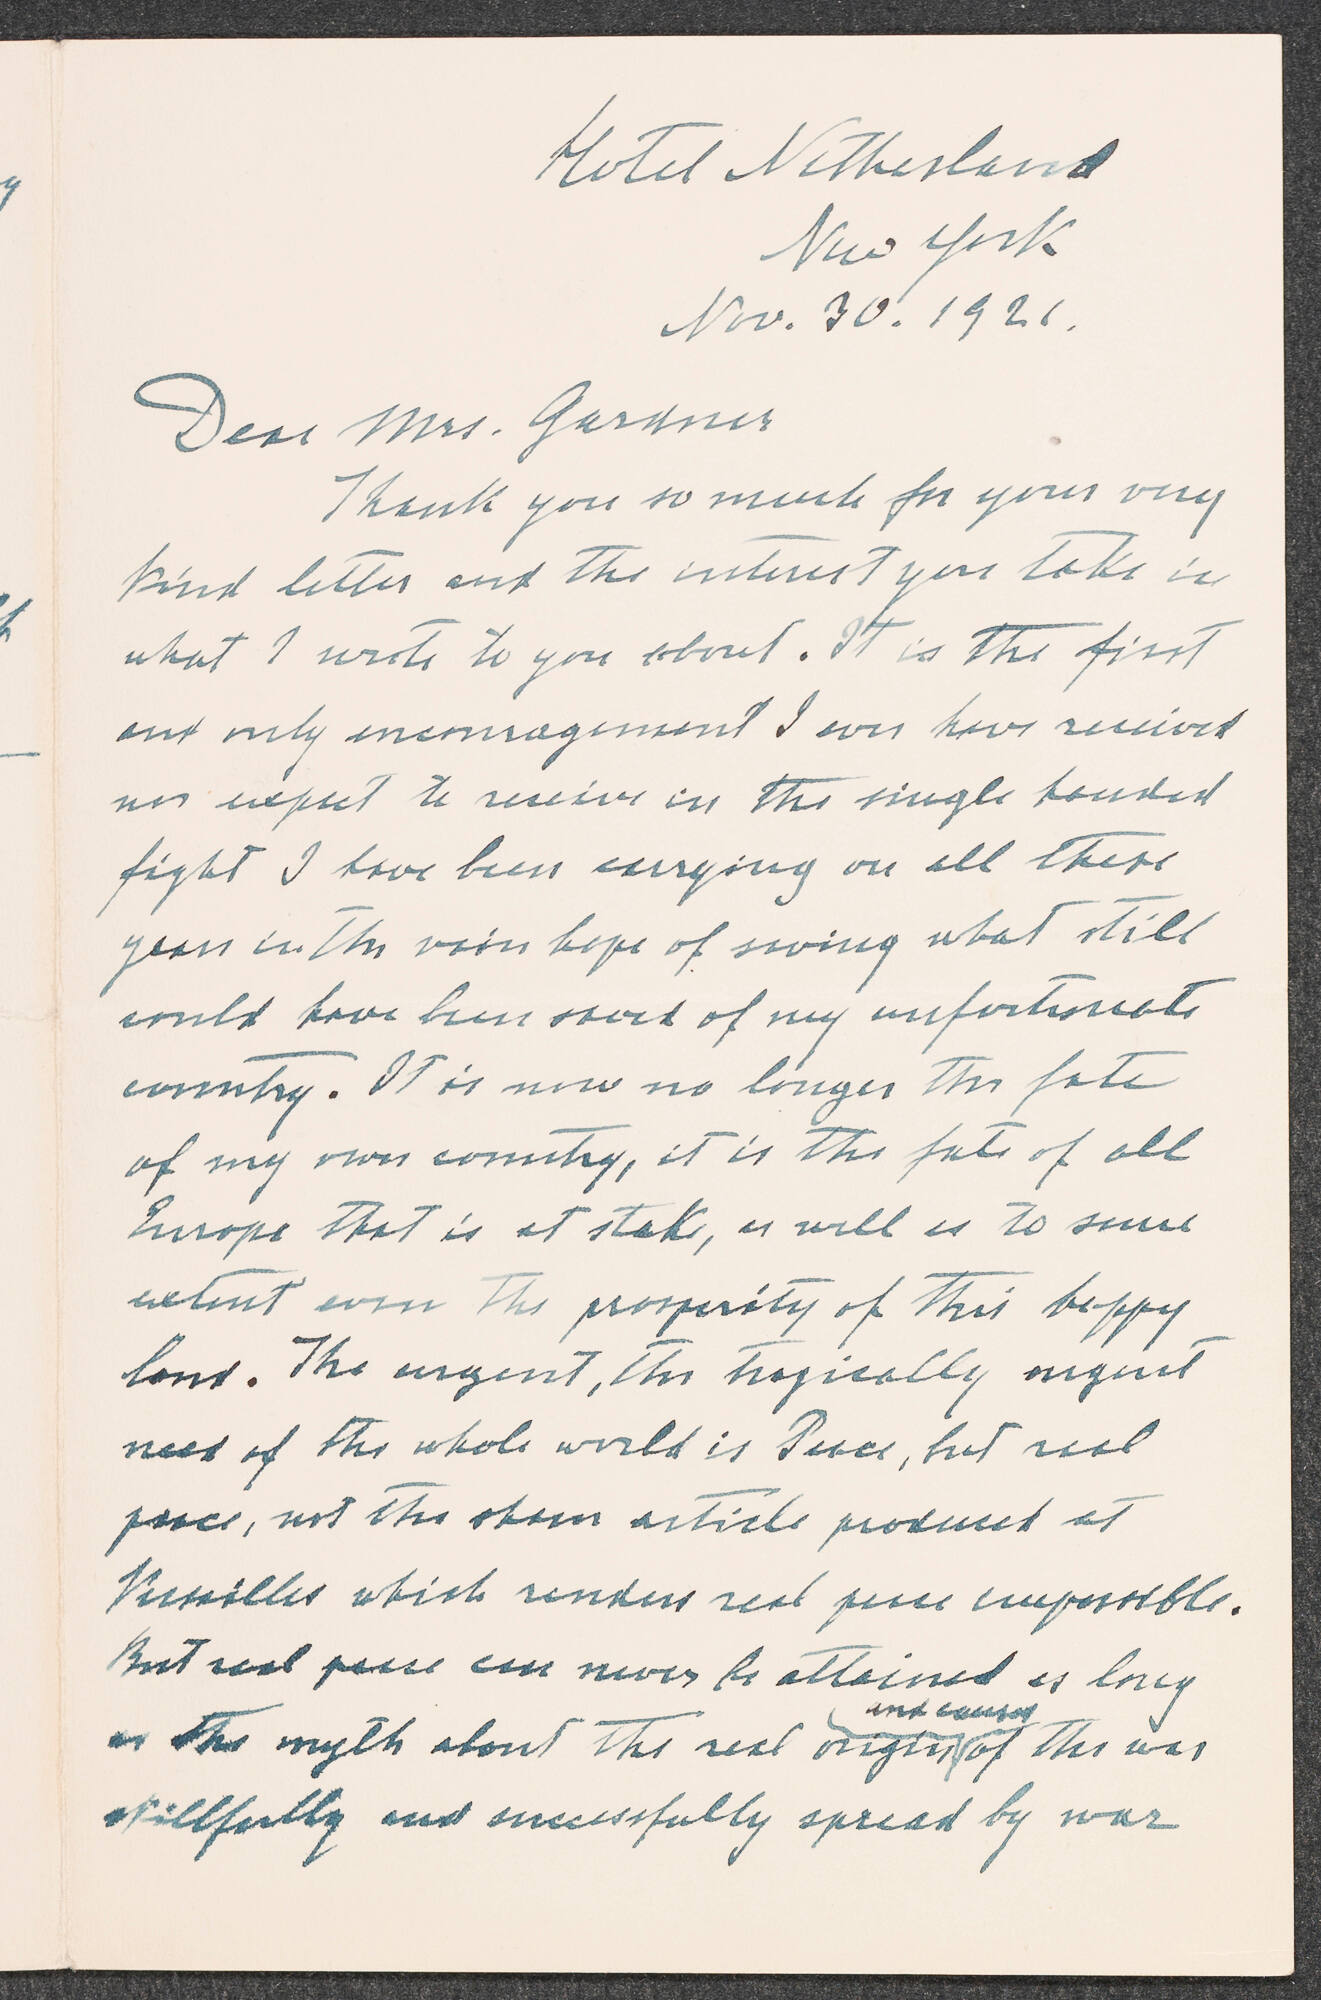 Hotel Netherland
New York
Nov. 30. 1921.
Dear Mrs. Gardner
Thank you so much for your very
kind letter and the interest you take in
what I wrote to you about. It is the first
and only encouragement I ever have received
nor expect to receive in the single handed
fight I have been carrying on all these
years in the vain hope of saving what still
could have been saved of my unfortunate
country. It is now no longer the fate
of my own country, it is the fate of all
Europe that is at stake, as well as to some
extent even the prosperity of this happy
land. The urgent, the tragically urgent
need of the whole world is Peace, but real
peace, not the sham article produced at
Versailles which renders real peace impossible.
But real peace can never be attained as long
and causes
as the myth about the real origin of the war
skillfully and successfully spread by war